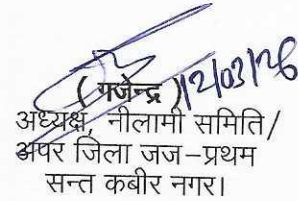 ( गजेन्द्र ) 12/03/26
अध्यक्ष, नीलामी समिति/
अपर जिला जज-प्रथम
सन्त कबीर नगर।